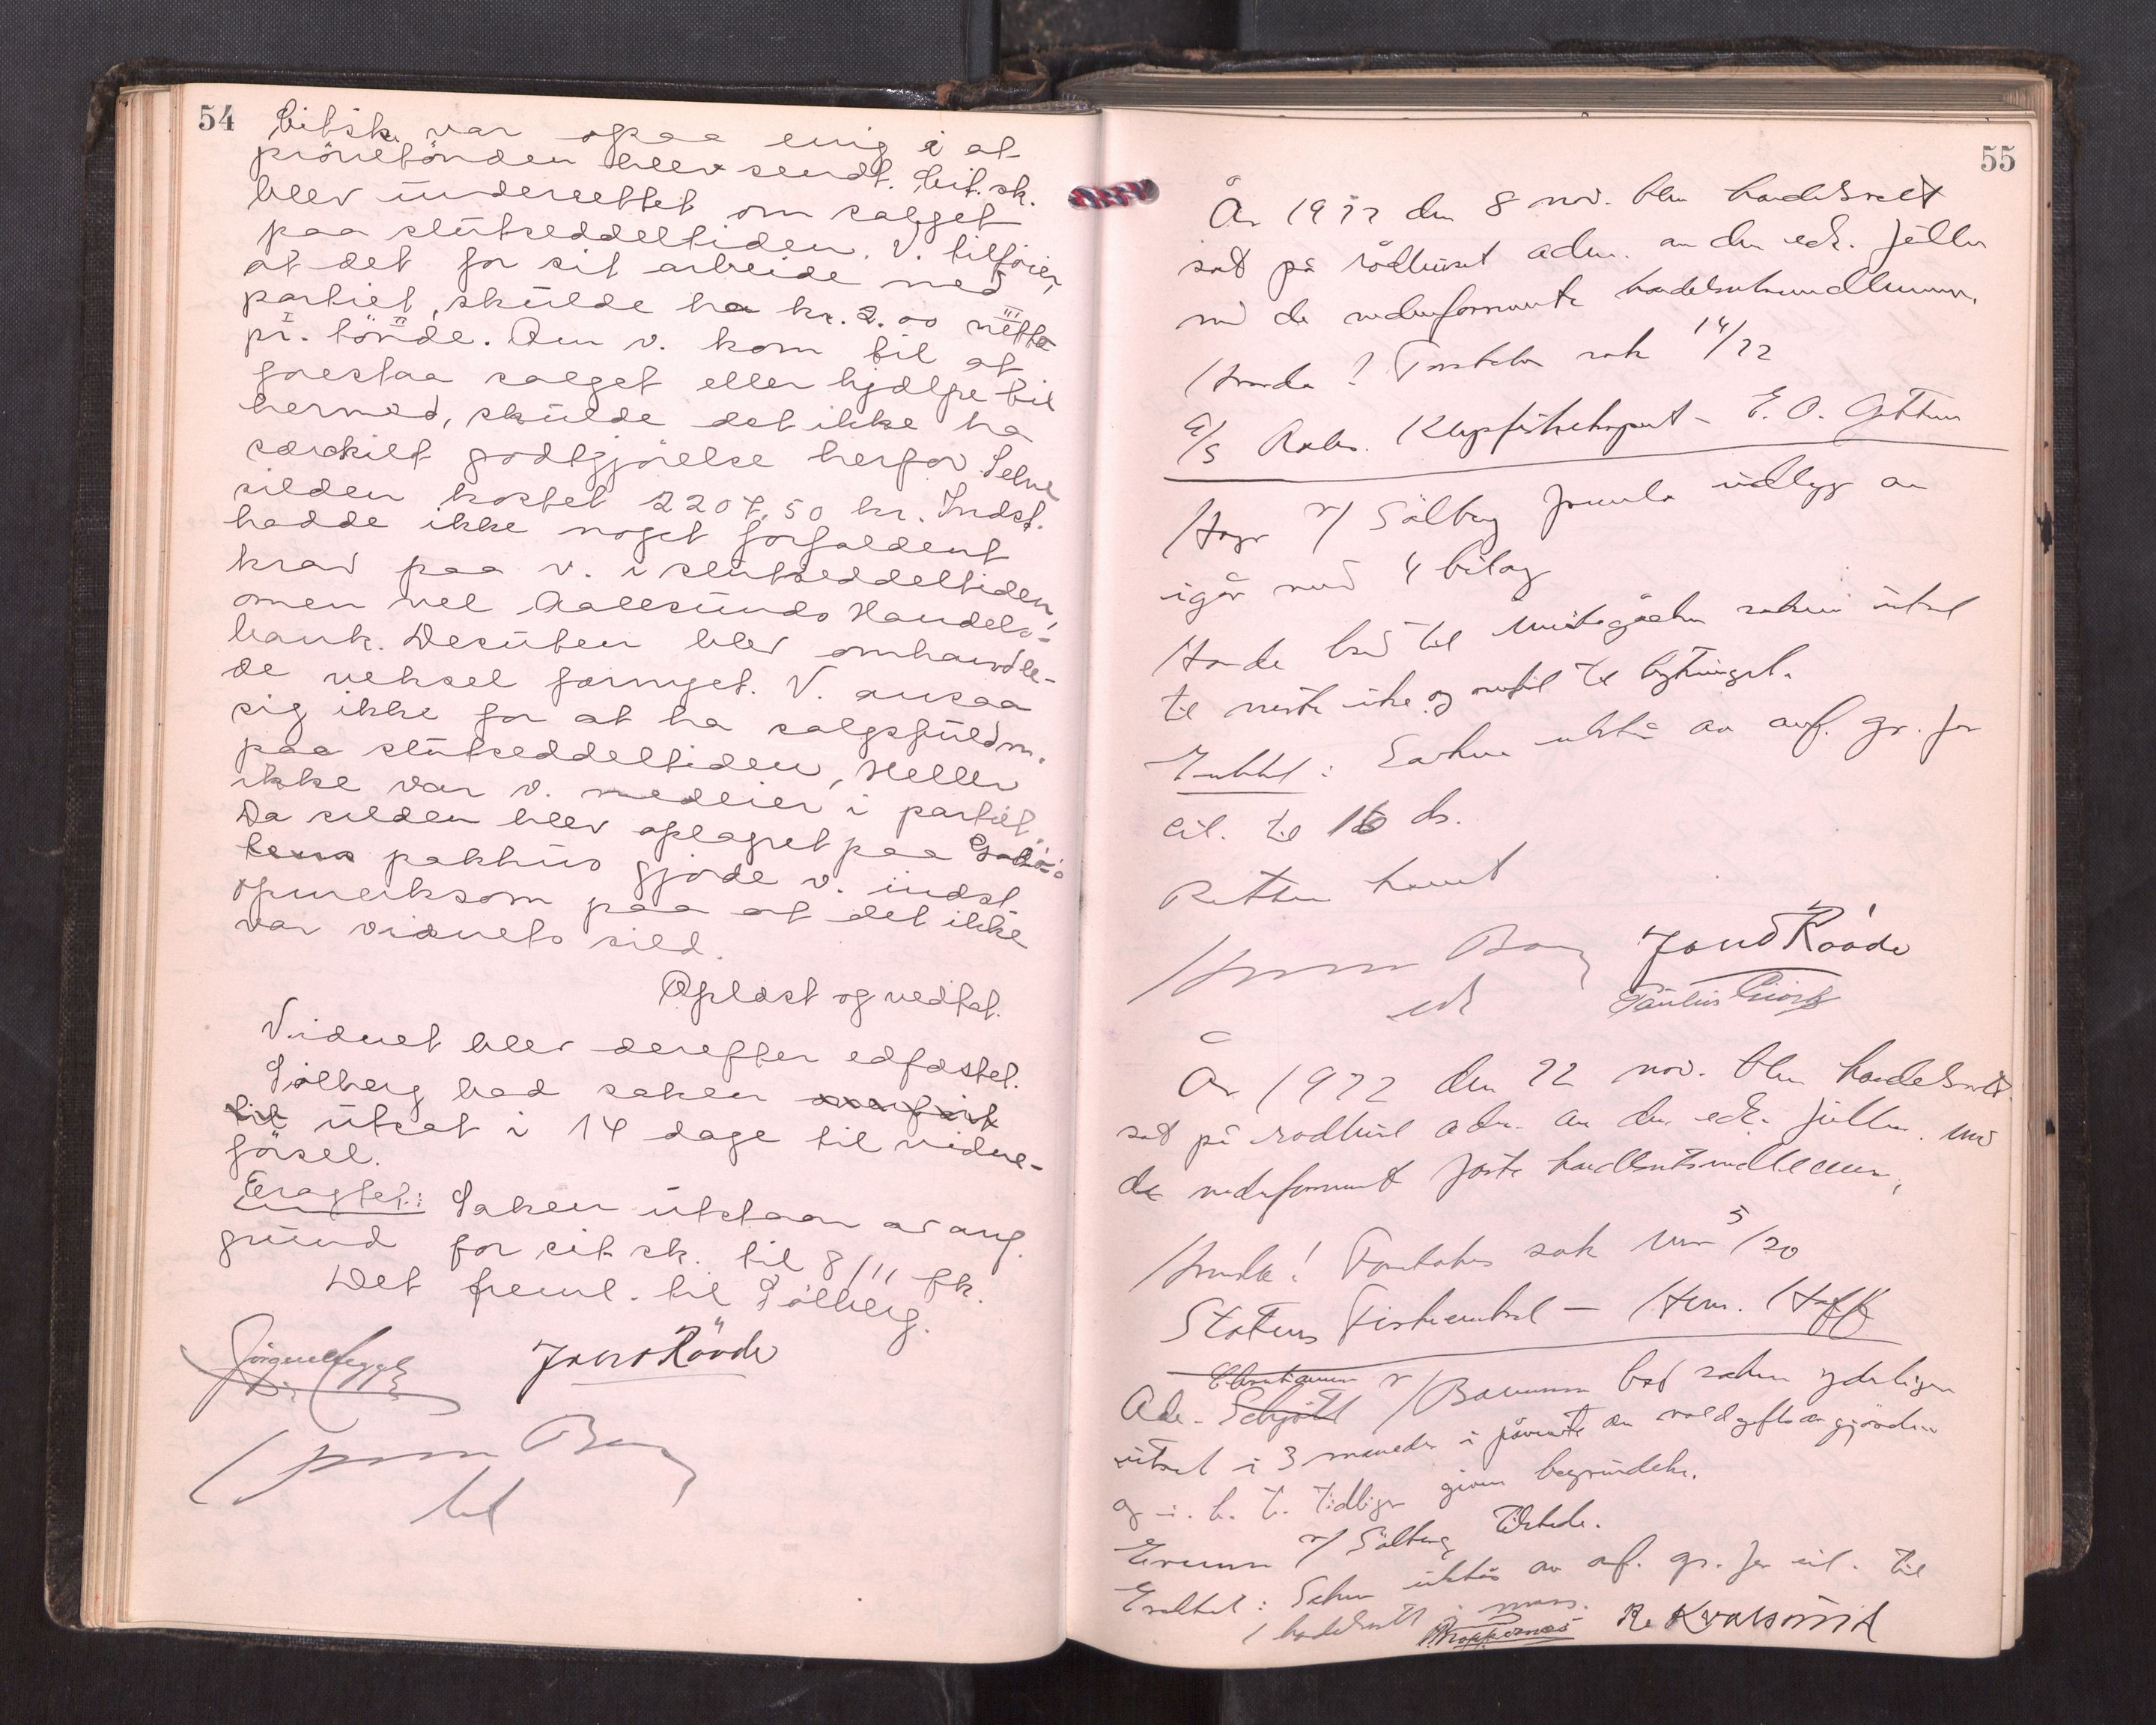 54
Citsk. var ogsaa enig i at
prövetönden blev sendt. Cit.sk.
blev underrettet om salget
paa slutseddeltiden. V. tilföier,
at det for sit arbeide med
partiet, skulde ha kr. 2.00 netto
pr. tönde. Om v. kom til at
forestaa salget eller hjælpe til
hermed, skulde det ikke ha
særskilt godtgjörelse herfor. Selve
silden kostet 2207,50 kr. Indst.
hadde ikke noget forfaldent
krav paa v. i slutseddeltiden,
men vel Aalesunds Handels-
bank. Desuten blev omhandle-
de veksel fornyet. V. ansaa
sig ikke for at ha salgsfuldm.
paa slutseddeltiden, Heller
ikke var v. medeier i partiet.
Da silden blev oplagret paa
pakhus gjorde v. indst.
opmerksom paa at det ikke
var vidnets sild.
Oplæst og vedtat.
Vidnet blev derefter edfæstet.
Sølberg bad saken
utsat i 14 dage til vidne-
førsel.
Eragtet: Saken utstaar av anf.
grund for cit. sk. til 8/11 fk.
Det freml. til Sølberg.
Jons Røode
55
År 1922 den 8 nov. blev handelsrett
sat på rådhuset adm. av den edf. fullm.
med de nedenfornevnte handelsrettsmedlemmer.
Foretokes sak 14/22
A/S Aales. Klipfiskeksport – E. O.
v/ Sølberg fremla utlegg av
igår med 4 bilag
bad til saken utsat
til neste uke og
Eraktet: Saken utstår av anf. gr. for
cit. til 16 ds.
Retten hevet
Jons Røode
År 1922 den 22 nov. blev handelsrett
sat på rådhuset adm. av den edf. fullm. med
de nedenfornevnte faste handelsrettsmedlemmer,
Foretokes sak nr 5/20
Statens Fiskecentral – Herm. Hoff
Adv. Schjött v/ Bad saken yderligere
utsat i 3 måneder i påvente av voldgiftsavgjørelsen
og i h. t. tidligere given begrundelse.
v/ Sølberg tiltrådte.
Eraktet: Saken utstår av anf. gr. for cit. til
1 handelsrett i mars.